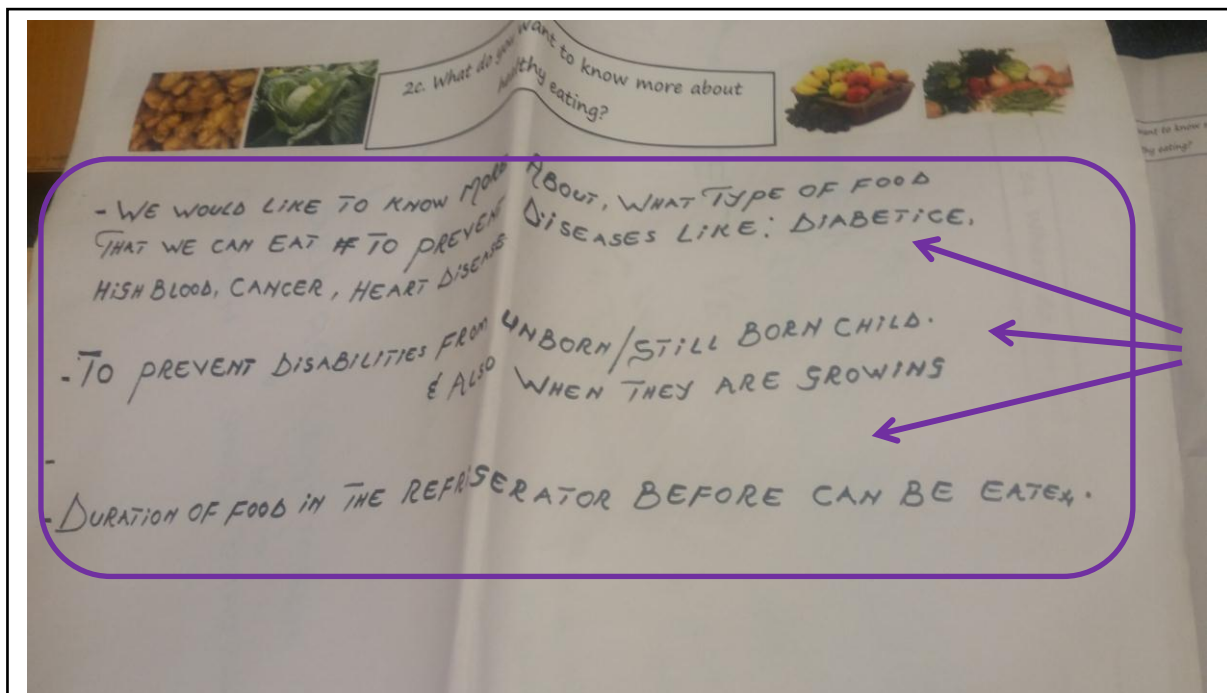 2c. What do you want to know more about
healthy eating?
want to know
By eating?
- WE WOULD LIKE TO KNOW MORE ABOUT, WHAT TYPE OF FOOD
THAT WE CAN EAT TO PREVENT DISEASES LIKE: DIABETICE,
HIGH BLOOD, CANCER, HEART DISEASE.
- TO PREVENT DISABILITIES FROM UNBORN/STILL BORN CHILD.
& ALSO WHEN THEY ARE GROWING
-
- DURATION OF FOOD IN THE REFRIGERATOR BEFORE CAN BE EATEN.